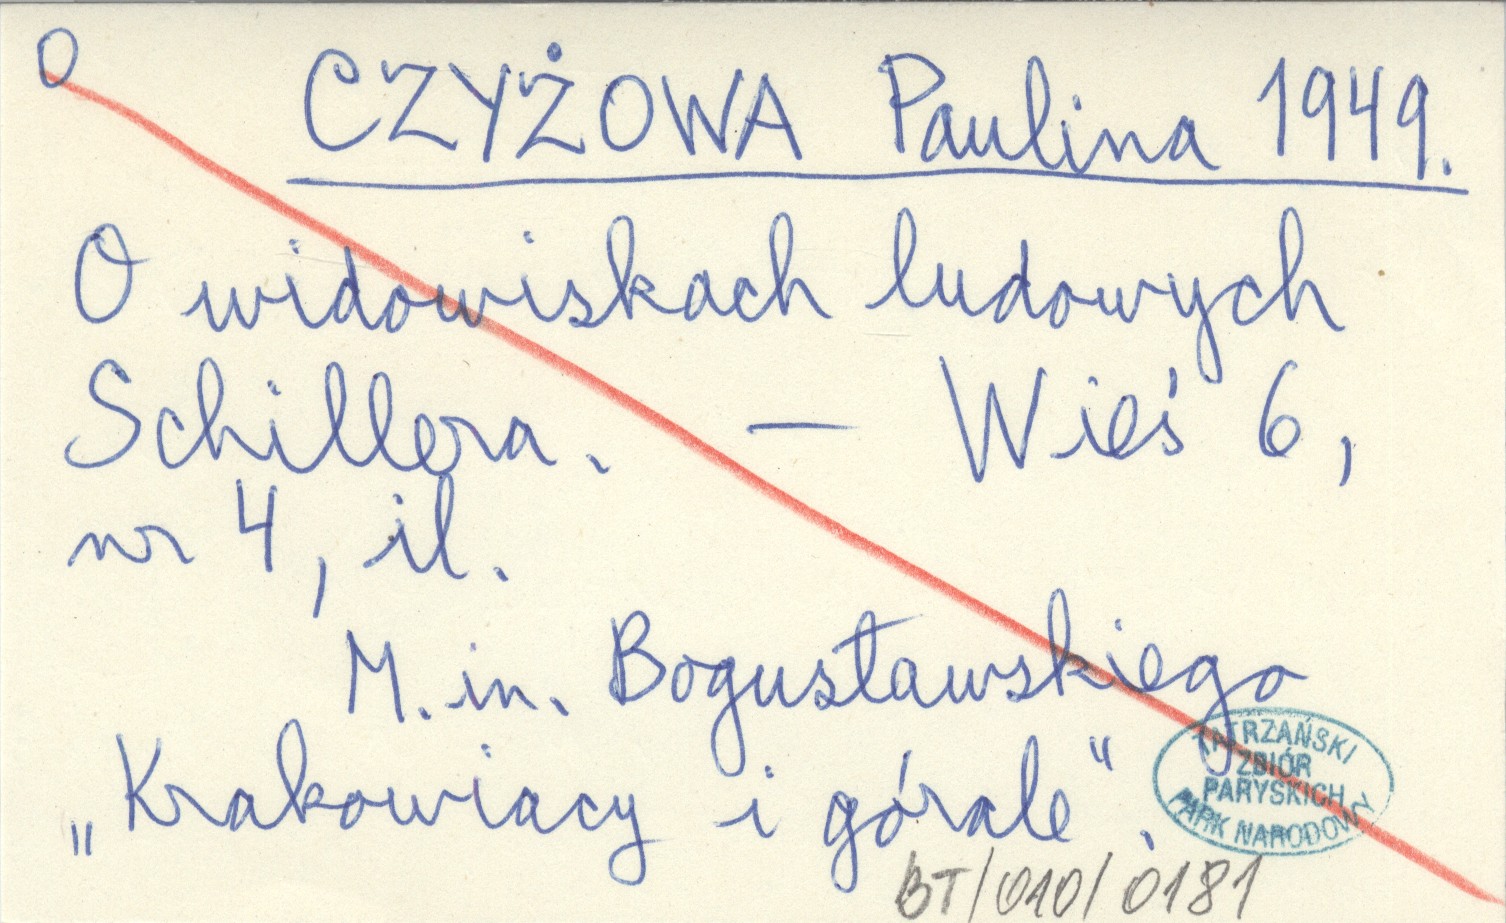 O
CZYŻOWA Paulina 1949.
O widowiskach ludowych
Schillera. — Wieś 6,
nr 4, il.
M. in. Bogusławskiego
„Krakowiacy i górale".
TATRZAŃSKI
ZBIÓR
PARYSKICH
PARK NARODOWY
BT/010/0181